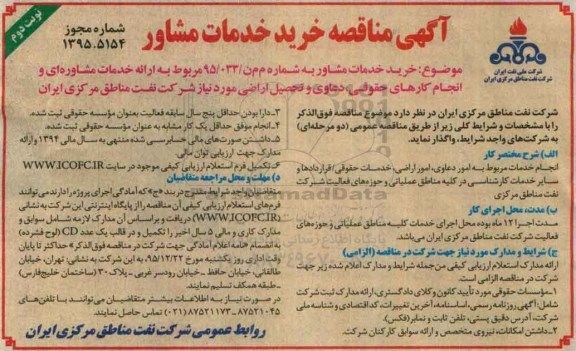 نوبت دوم
آگهی مناقصه خرید خدمات مشاور
شماره مجوز
۱۳۹۵.۵۱۵۴
شرکت ملی نفت ایران
شرکت نفت مناطق مرکزی ایران
موضوع: خرید خدمات مشاور به شماره م‌م‌ن/۹۵/۰۳۳ مربوط به ارائه خدمات مشاوره‌ای و
انجام کارهای حقوقی، دعاوی و تحصیل اراضی مورد نیاز شرکت نفت مناطق مرکزی ایران
شرکت نفت مناطق مرکزی ایران در نظر دارد موضوع مناقصه فوق‌الذکر
را با مشخصات و شرایط کلی زیر از طریق مناقصه عمومی (دو مرحله‌ای)
به شرکت‌های واجد شرایط، واگذار نماید.
الف) شرح مختصر کار
انجام خدمات مربوط به امور دعاوی، امور اراضی، خدمات حقوقی/قراردادها و
سایر خدمات کارشناسی در کلیه مناطق عملیاتی و حوزه‌های فعالیت شرکت
نفت مناطق مرکزی
ب) مدت، محل اجرای کار
مدت اجرا ۱۲ ماه بوده محل اجرای خدمات کلیه مناطق عملیاتی و حوزه‌های
فعالیت شرکت نفت مناطق مرکزی ایران می‌باشد.
ج) شرایط و مدارک مورد نیاز جهت شرکت در مناقصه (الزامی)
ارائه مدارک استعلام ارزیابی کیفی من‌جمله شرایط و مدارک اعلام شده زیر جهت
شرکت در مناقصه الزامی است.
۱ـ مؤسسات حقوقی مورد تأیید کانون وکلای دادگستری، ارائه مدارک ثبت شرکت
شامل: آگهی روزنامه رسمی، اساسنامه، آخرین تغییرات، کد اقتصادی و شناسه ملی
شرکت، آدرس دقیق پستی، تلفن ثابت و نمابر (فکس).
۲ـ داشتن امکانات، نیروی متخصص و ارائه سوابق کارکنان شرکت.
۳ـ دارا بودن حداقل پنج سال سابقه فعالیت بعنوان مؤسسه حقوقی ثبت شده.
۴ـ انجام موفق حداقل یک کار مشابه به عنوان مؤسسه حقوقی ثبت شده.
۵ـ داشتن صورت‌های مالی حسابرسی شده منتهی به سال مالی ۱۳۹۴ و ارائه
مدارک جهت ارزیابی توان مالی.
۶ـ تکمیل فرم استعلام ارزیابی کیفی موجود در سایت WWW.ICOFC.IR
د) مهلت و محل مراجعه متقاضیان
متقاضیان واجد شرایط مشروح در بند «ج» که آمادگی اجرای پروژه را دارند می‌توانند
فرم‌های استعلام ارزیابی کیفی آن مناقصه را از پایگاه اینترنتی این شرکت به نشانی
(WWW.ICOFC.IR) دریافت و بر اساس آن مدارک لازمه شامل سوابق و
مدارک کاری و مالی ۵ سال اخیر را تکمیل و در قالب یک عدد CD (لوح فشرده)
به انضمام «نامه اعلام آمادگی جهت شرکت در مناقصه فوق‌الذکر» حداکثر تا پایان
وقت اداری روز یکشنبه مورخ ۹۵/۱۲/۲۲ به این شرکت به نشانی: تهران، خیابان
طالقانی، خیابان حافظ ـ خیابان رودسر غربی ـ پلاک ۳۰ (ساختمان خلیج‌فارس)
ـ طبقه همکف تسلیم نمایند.
در صورت نیاز به اطلاعات بیشتر متقاضیان می‌توانند با تلفن‌های
۸۷۵۲۱۰۴۵ـ ۸۷۵۲۱۱۷۳(۰۲۱) تماس حاصل نمایند.
روابط عمومی شرکت نفت مناطق مرکزی ایران